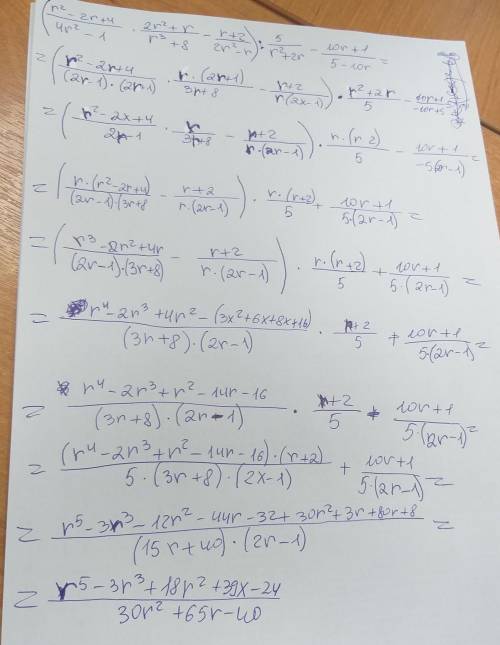 (r²-2r+4/4r²-1 · 2r²+r/r³+8 - r+2/2r²-r) : 5/r²+2r - 10r+1/5-10r =
= (r²-2r+4/(2r-1)·(2r1) · r·(2r+1)/3r+8 - r+2/r(2r1)) · r²+2r/5 -
= (r²-2x+4/2r-1 · r/3r+8 - r+2/r·(2r-1)) · r·(r 2)/5 - 10r+1/-5(2r-1) =
= (r·(r²-2r+4)/(2r-1)·(3r+8 - r+2/r·(2r-1)) · r·(r+2)/5 + 10r+1/5·(2r-1) =
= (r³-2r²+4r/(2r-1)·(3r+8) - r+2/r·(2r-1)) · r·(r+2)/5 + 10r+1/5·(2r-1) =
= r⁴-2r³+4r²-(3x²+6x+8x+16)/(3r+8)·(2r-1) · r+2/5 + 10r+1/5(2r-1) =
= r⁴-2r³+r²-14r-16/(3r+8)·(2r-1) · r+2/5 + 10r+1/5·(2r-1) =
= (r⁴-2r³+r²-14r-16)·(r+2)/5·(3r+8)·(2x-1) + 10r+1/5·(2r-1) =
= r⁵-3r³-12r²-44r-32+30r²+3r+80r+8/(15r+40)·(2r-1) =
= r⁵-3r³+18r²+39x-24/30r²+65r-40